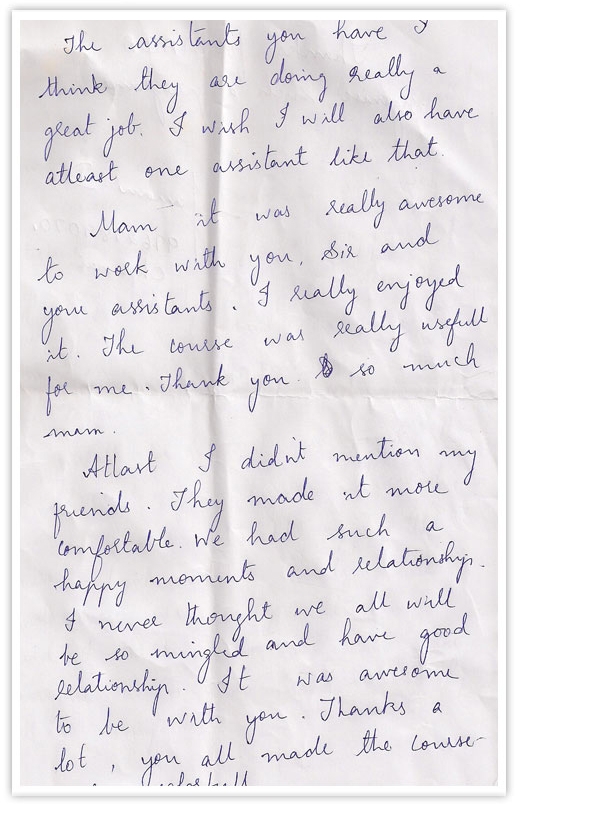 The assistants you have I
think they are doing really a
great job. I wish I will also have
atleast one assistant like that.
Mam it was really awesome
to work with you, Sir and
your assistants. I really enjoyed
it. The course was really usefull
for me. Thank you so much
mam.
Atlast I didn't mention my
friends. They made it more
comfortable. We had such a
happy moments and relationship.
I never thought we all will
be so mingled and have good
relationship. It was awesome
to be with you. Thanks a
lot, you all made the course